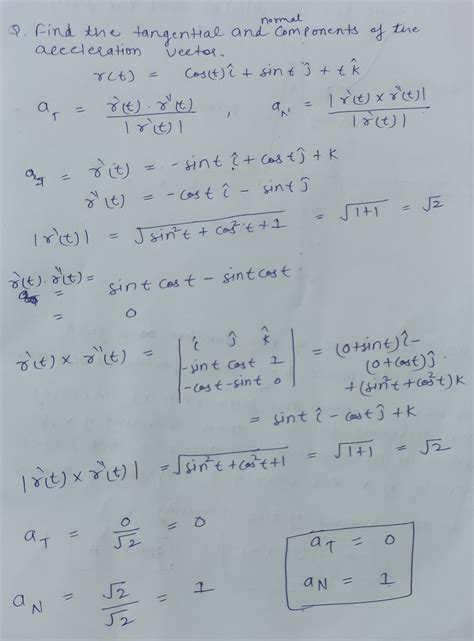 Q. Find the tangential and normal components of the
acceleration vector.
r(t) = cos(t)î + sint ĵ + t k̂
a_T = r'(t) . r''(t) / |r'(t)| , a_N = |r'(t) × r''(t)| / |r'(t)|
a_T = r'(t) = -sint î + cost ĵ + k
r''(t) = -cost î - sint ĵ
|r'(t)| = √(sin²t + cos²t + 1) = √(1+1) = √2
r'(t) . r''(t) =
= sint cost - sint cost.
= 0
r'(t) × r''(t) = | î ĵ k̂ | = (0+sint)î -
| -sint cost 1 | (0+cost)ĵ
| -cost -sint 0 | + (sin²t + cos²t)k
= sint î - cost ĵ + k
|r'(t) × r''(t)| = √(sin²t + cos²t + 1) = √(1+1) = √2
a_T = 0/√2 = 0
a_N = √2/√2 = 1
a_T = 0
a_N = 1